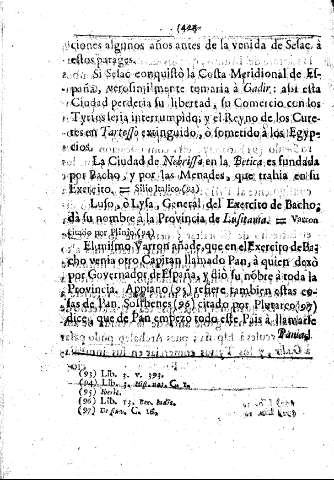 ciones algunos años antes de la venida de Selac. à
estos parages.
Si Selac conquistò la Costa Meridional de Es-
paña, verosinilmente tomaria à Gadir: asi esta
Ciudad perderia su libertad, su Comercio con los
Tyrios seria interrumpido, y el Reyno de los Cure-
tes en Tartesso extinguido, ò sometido à los Egyp-
cios.
La Ciudad de Nebrissa en la Betica es fundada
por Bacho, y por las Menades, que trahia en su
Exercito. = Silio Italico. (93)
Luso, ò Lysa, General del Exercito de Bacho;
dà su nombre à la Provincia de Lusitania. = Varron
citado por Plinio. (94)
El mismo Varron añade, que en el Exercito de Ba-
cho venia otro Capitan llamado Pan, à quien dexò
por Governador de España, y diò su nõbre à toda la
Provincia. Appiano (95) refiere tambien estas co-
sas de Pan. Sosthenes (96) citado por Plutarco (97)
dice, que de Pan empezo todo este Pais à llamarse
Pania,
(93) Lib. 3. v. 393.
(94) Lib. 3. Hist. nat. C. 1.
(95) Iberic.
(96) Lib. 13.
(97) C. 16.